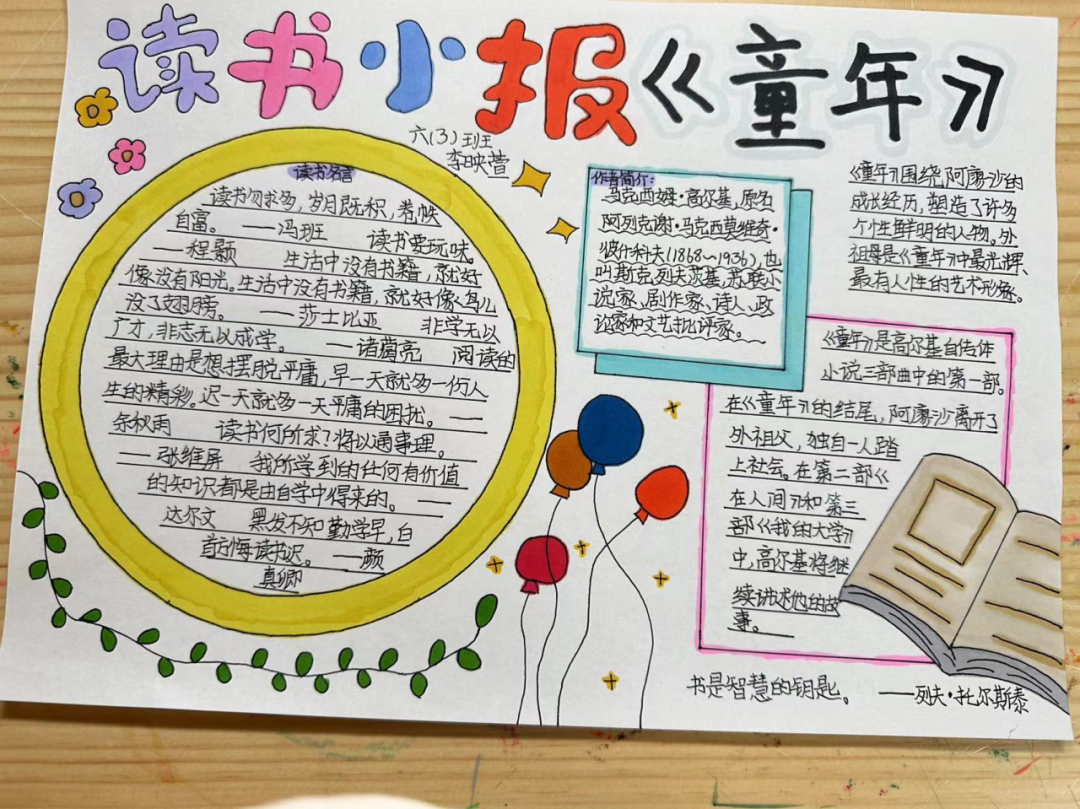 读书小报《童年》
六(3)班
李映萱
读书名言
读书勿求多，岁月既积，卷帙
自富。——冯班 读书要玩味。
——程颢 生活中没有书籍，就好
像没有阳光。生活中没有书籍，就好像鸟儿
没了翅膀。——莎士比亚 非学无以
广才，非志无以成学。——诸葛亮 阅读的
最大理由是想摆脱平庸，早一天就多一份人
生的精彩。迟一天就多一天平庸的困扰。——
余秋雨 读书何所求？将以通事理。
——张维屏 我所学到的任何有价值
的知识都是由自学中得来的。——
达尔文 黑发不知勤学早，白
首方悔读书迟。——颜
真卿
作者简介：
马克西姆·高尔基，原名
阿列克谢·马克西莫维奇·
彼什科夫(1868~1936)，也
叫斯克列夫茨基，苏联小
说家、剧作家、诗人、政
论家和文艺批评家。
《童年》围绕阿廖沙的
成长经历，塑造了许多
个性鲜明的人物。外
祖母是《童年》中最光辉、
最有人性的艺术形象。
《童年》是高尔基自传体
小说三部曲中的第一部。
在《童年》的结尾，阿廖沙离开了
外祖父，独自一人踏
上社会。在第二部《
在人间》和第三
部《我的大学》
中，高尔基将继
续讲述他的故
事。
书是智慧的钥匙。——列夫·托尔斯泰